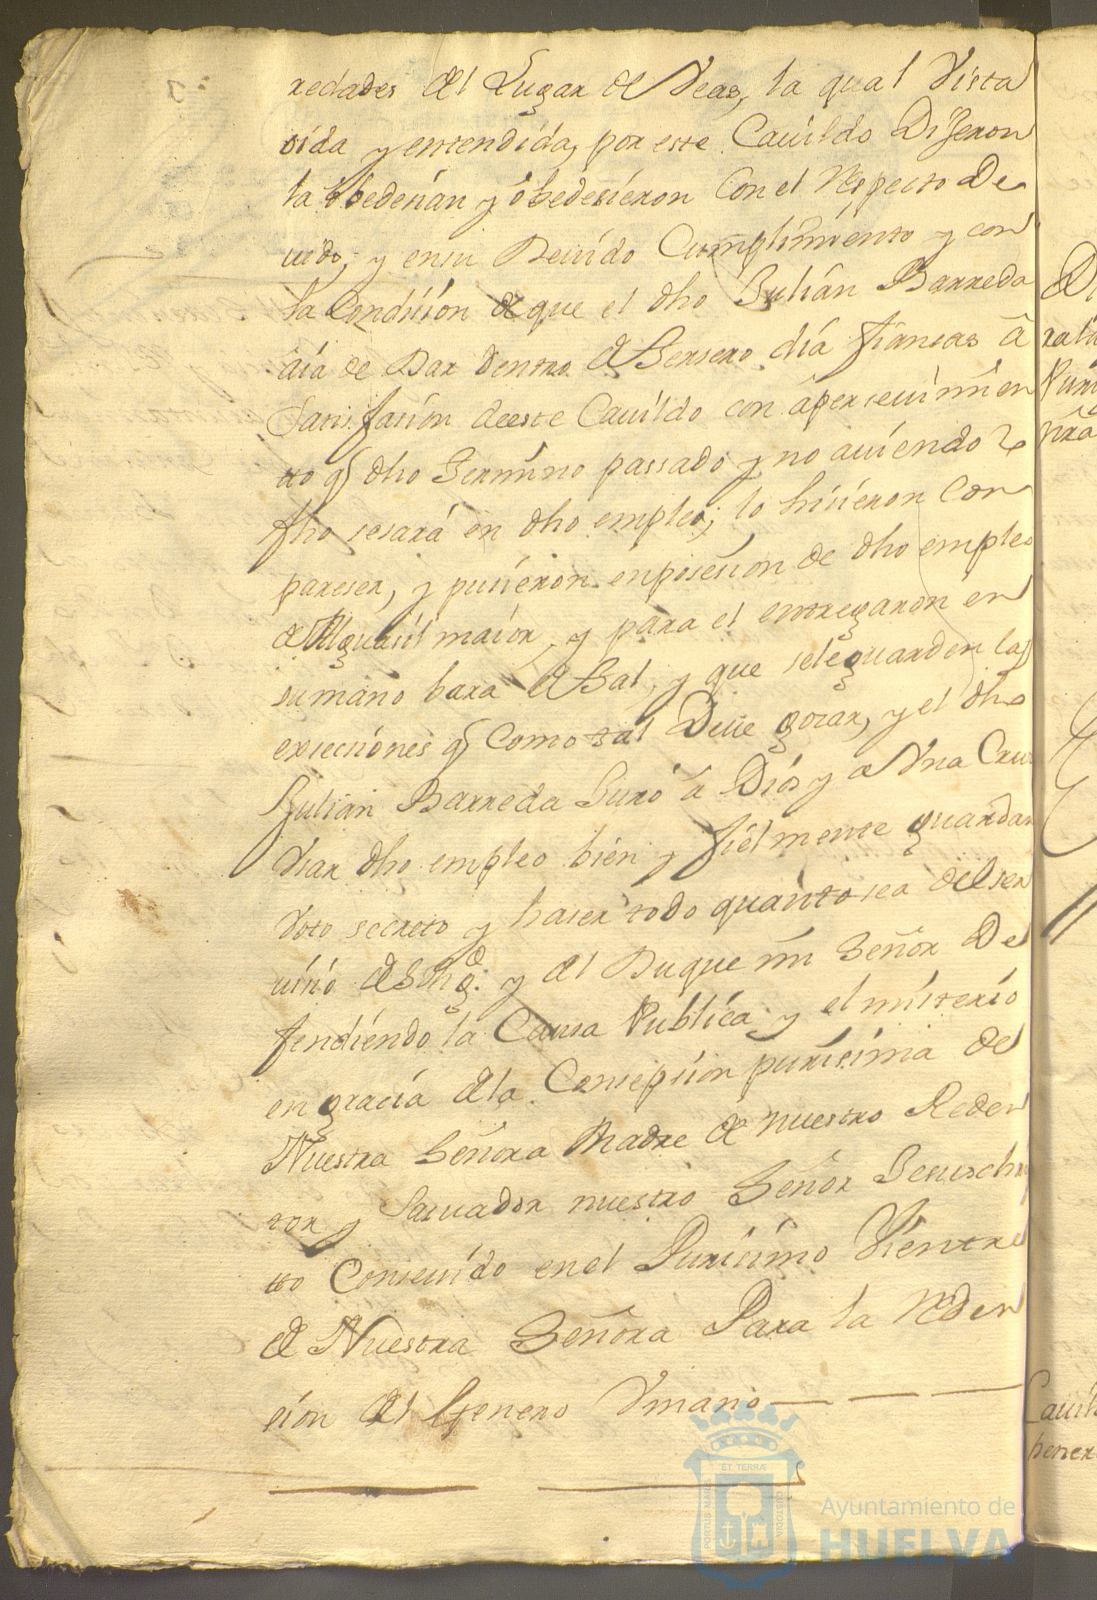 redades del Lugar de Veas, la qual Vista
oida y entendida, por este Cauildo Dijeron
la obedeсian y obedesieron Con el Respecto De
uido, y en su Deuido Cumplimiento y con
la Condision de que el dho Julian Barreda
aia de Dar dentro de terzero dia fianzas a
Satisfasion de este Cauildo con aperseuimien
to q dho termino passado y no auiendo lo
fho sesará en dho empleo; lo hisieron Con
pareser, y pusieron en posesion de dho empleo
de Alguasil maior, y para el entregaron en
su mano bara de tal, y que se le guarden las
exsecsiones q Como tal Deue gozar, y el dho
Julian Barreda Juró a Dios y a Vna Cruz
Vsar dho empleo bien y fielmente guardar
Voto secreto y haser todo quanto sea del ser
uisio de S Mgd. y del Duque mi Señor De
fendiendo la Causa Publica y el misterio
en grasia de la Consepsion purisima de
Nuestra Señora Madre de nuestro Reden
tor y Saluador nuestro Señor Jesuschris
to Conseuido en el Purisimo Vientre
de Nuestra Señora Para la Reden
sion del Genero Vmano
Cauil
Ayuntamiento de
HUELVA
PORTUS MARIS
ET TERRÆ
CUSTODIA